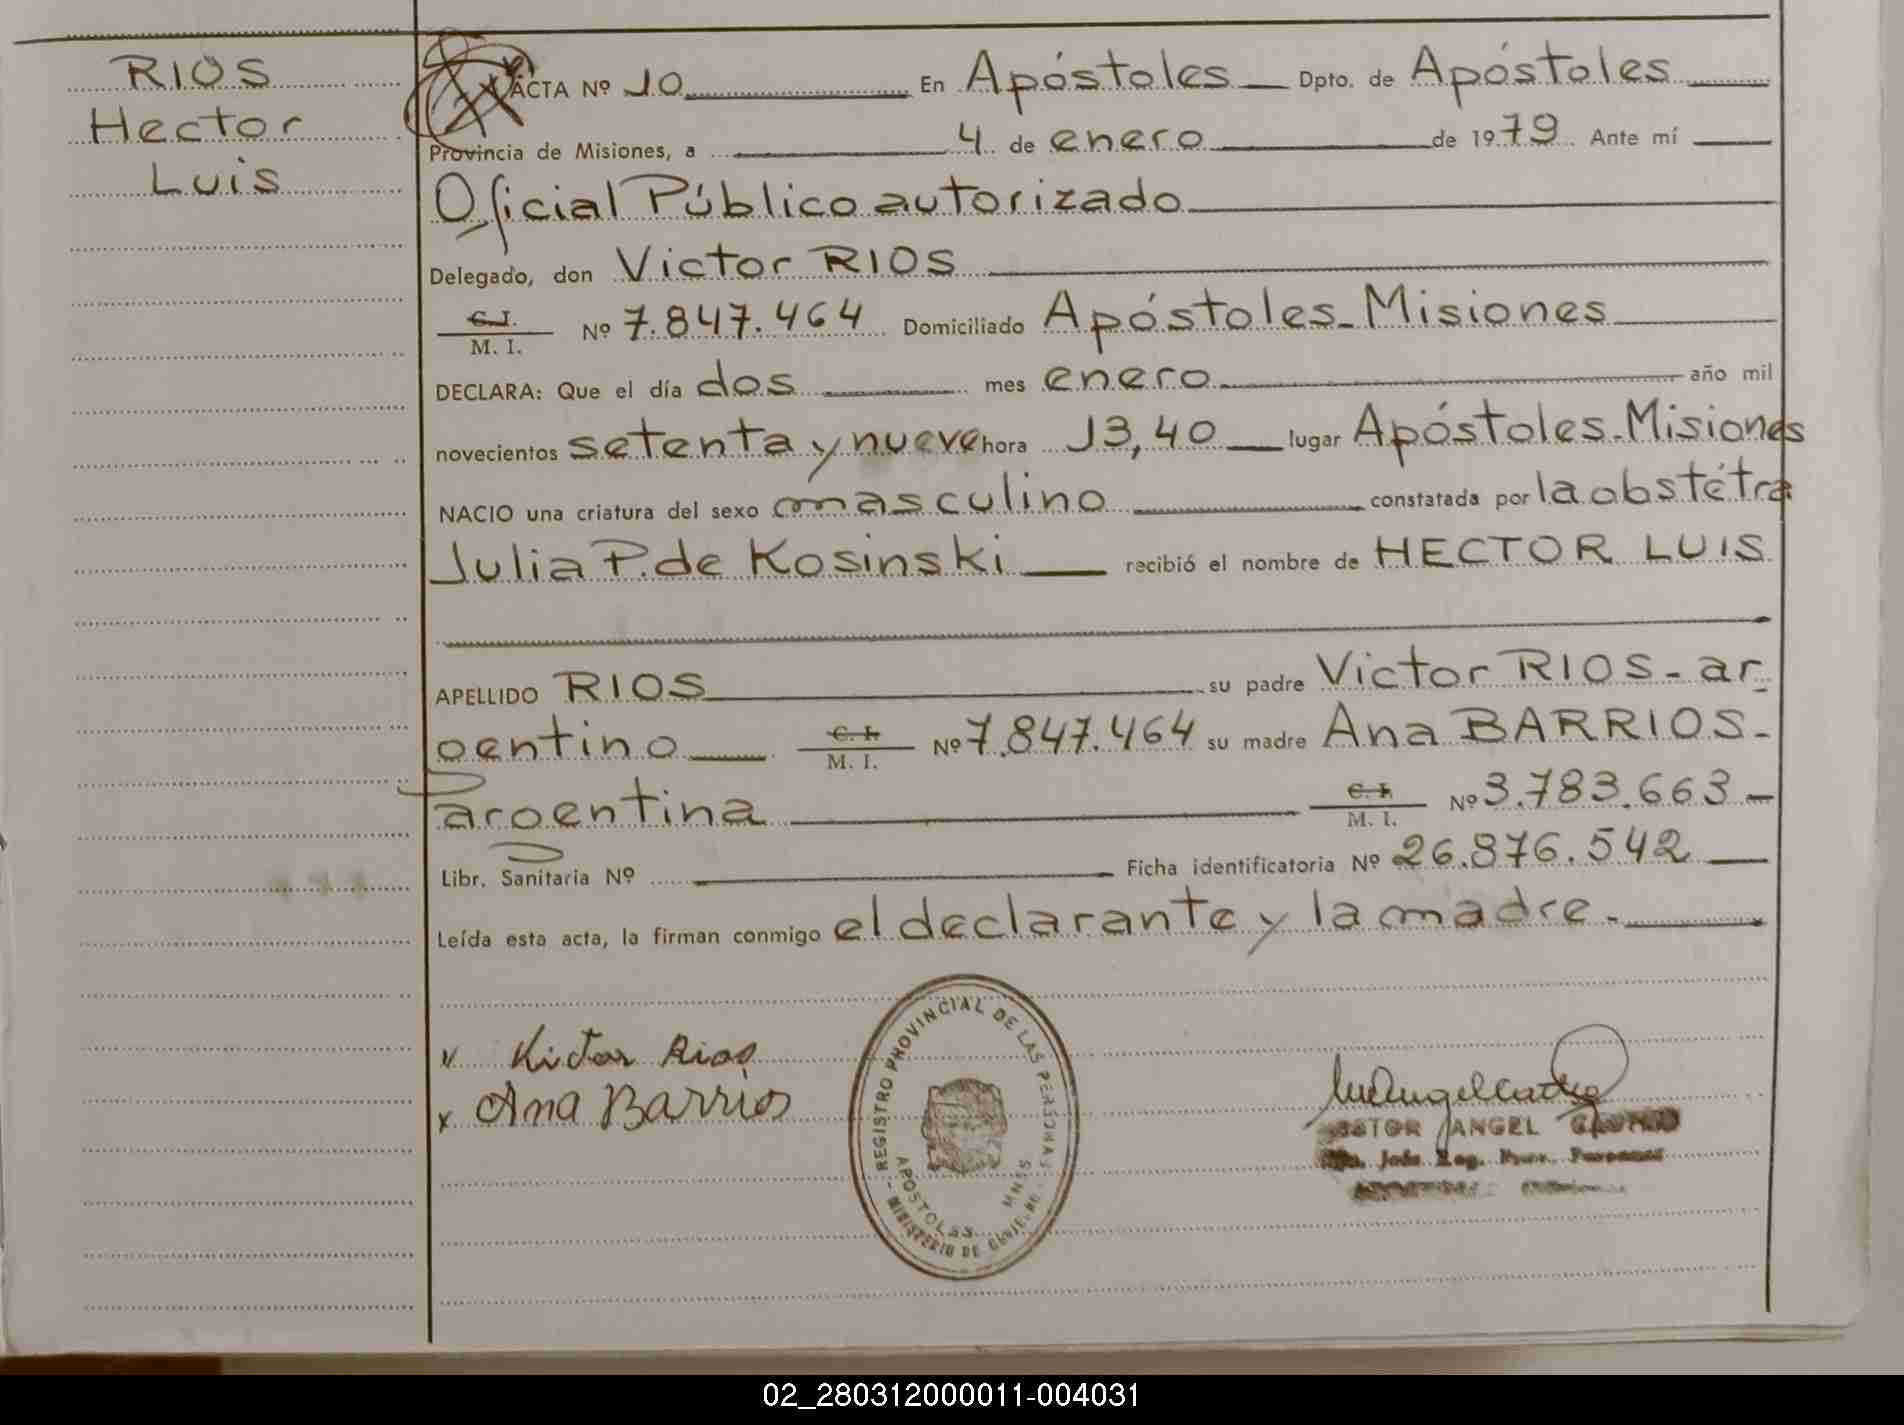 RIOS
Hector
Luis
ACTA Nº 10 En Apóstoles Dpto. de Apóstoles
Provincia de Misiones, a 4 de enero de 1979 Ante mí
Oficial Público autorizado
Delegado, don Victor RIOS
C.I.
M. I. Nº 7.847.464 Domiciliado Apóstoles-Misiones
DECLARA: Que el día dos mes enero año mil
novecientos setenta y nueve hora 13,40 lugar Apóstoles-Misiones
NACIO una criatura del sexo masculino constatada por la obstétra
Julia P. de Kosinski recibió el nombre de HECTOR LUIS
APELLIDO RIOS su padre Victor RIOS - ar
gentino C. I. M. I. Nº 7.847.464 su madre Ana BARRIOS -
argentina C. I. M. I. Nº 3.783.663 -
Libr. Sanitaria Nº Ficha identificatoria Nº 26.876.542
Leída esta acta, la firman conmigo el declarante y la madre.
Victor Rios
x Ana Barrios
REGISTRO PROVINCIAL DE LAS PERSONAS
APOSTOLES MNES
MINISTERIO DE GOBIERNO
ANGEL
Jefe Reg. Prov. Personas
02_280312000011-004031